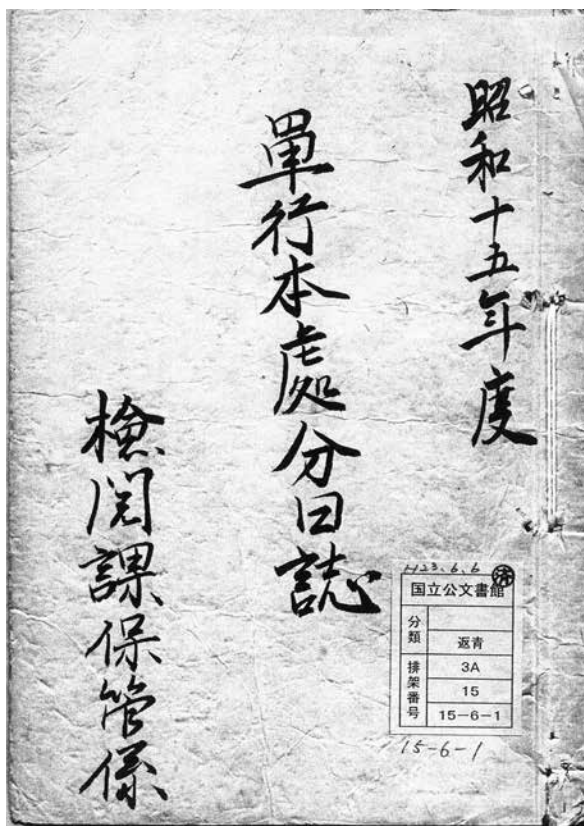 昭和十五年度
單行本處分日誌
検閲課保管係
H23.6.6
済
国立公文書館
分類
返青
排架番号
3A
15
15-6-1
15-6-1